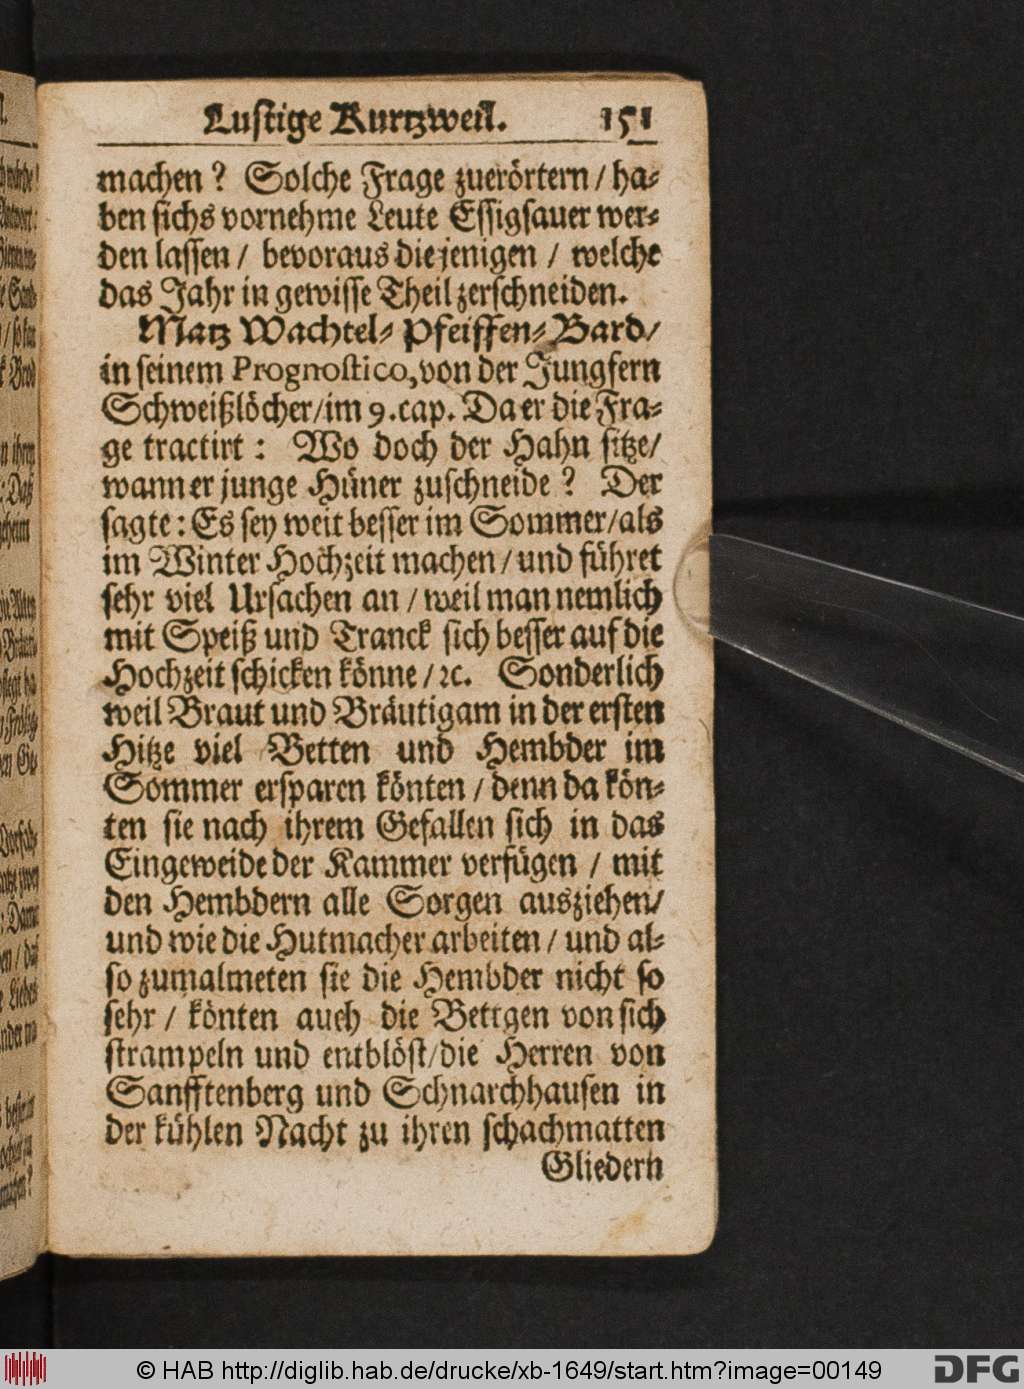 Lustige Kurtzweil. 151
machen? Solche Frage zuerörtern / ha⸗
ben sichs vornehme Leute Essigsauer wer⸗
den lassen / bevoraus diejenigen / welche
das Jahr in gewisse Theil zerschneiden.
Matz Wachtel⸗ Pfeiffen⸗ Bard /
in seinem Prognostico, von der Jungfern
Schweißlöcher / im 9. cap. Da er die Fra⸗
ge tractirt: Wo doch der Hahn sitze /
wann er junge Hüner zuschneide? Der
sagte: Es sey weit besser im Sommer / als
im Winter Hochzeit machen / und führet
sehr viel Ursachen an / weil man nemlich
mit Speiß und Tranck sich besser auf die
Hochzeit schicken könne / ꝛc. Sonderlich
weil Braut und Bräutigam in der ersten
Hitze viel Betten und Hembder im
Sommer ersparen könten / denn da kön⸗
ten sie nach ihrem Gefallen sich in das
Eingeweide der Kammer verfügen / mit
den Hembdern alle Sorgen ausziehen /
und wie die Hutmacher arbeiten / und al⸗
so zumalmeten sie die Hembder nicht so
sehr / könten auch die Bettgen von sich
strampeln und entblöst / die Herren von
Sanfftenberg und Schnarchhausen in
der kühlen Nacht zu ihren schachmatten
Gliedern
© HAB http://diglib.hab.de/drucke/xb-1649/start.htm?image=00149
DFG